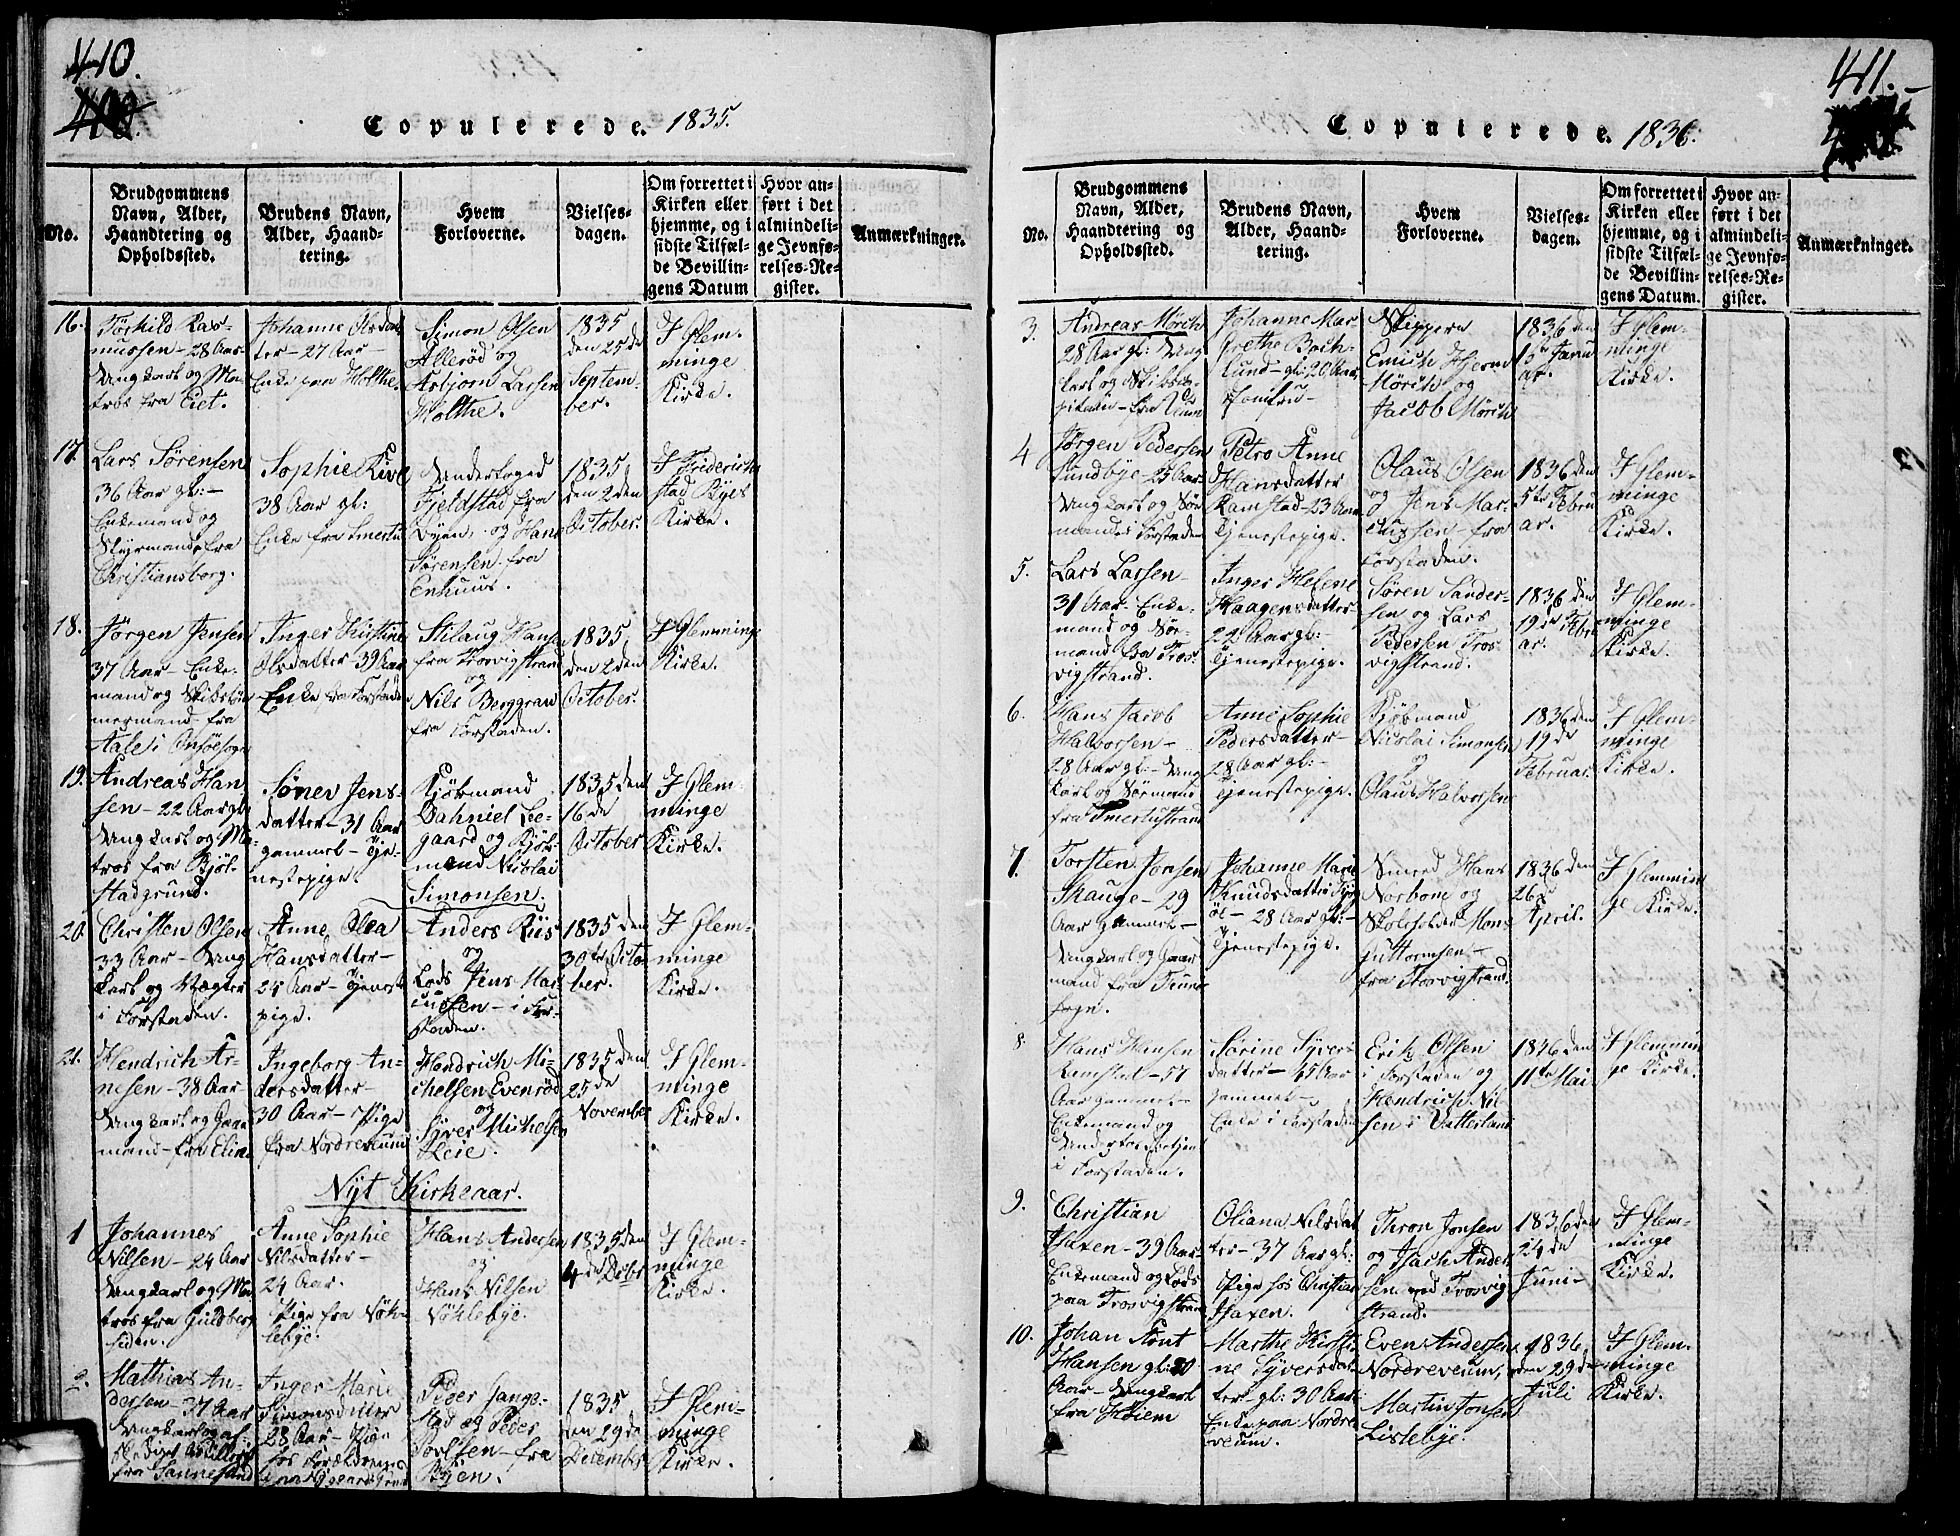 410.
Copulerede. 1835.
No.
Brudgommens Navn, Alder, Haandtering og Opholdssted.
Brudens Navn, Alder, Haandtering.
Hvem Forloverne.
Vielsesdagen.
Om forrettet i Kirken eller hjemme, og i sidste Tilfælde Bevillingens Datum
Hvor anført i det almindelige Jevnførelses-Register.
Anmærkninger.
16.
Torkild Rasmussen - 28 Aar
Ungkarl og Matros fra Eiet.
Johanne Olsdatter - 27 Aar -
Enke paa Holthe
Simon Olsen
Allerød og
Asbjørn Larsen
Holthe.
1835
den 25de
September.
I Glemminge
Kirke.
17.
Lars Sørensen
36 Aar gl: -
Enkemand og
Styrmand fra
Christiansborg.
Sophie Kive
38 Aar gl:
Enke fra Smertu
Fjeldstad fra
Byen, og Hans
Sørensen fra
Enhuus.
1835
den 2den
October.
I Friderichstad Byes
Kirke.
18.
Jørgen Jensen
37 Aar - Enkemand og Skibstømmermand fra
Aale i Onsøe sogn
Inger Kirstine
Olsdatter - 39 Aar
Enke fra Forstaden
Stilaug Hansen
fra Trosvigstrand
og
Nils Berggran
fra Forstaden.
1835
den 2den
October.
I Glemminge
Kirke.
19.
Andreas Hansen - 22 Aar gl:
Ungkarl og Matros fra Kjølstadgrund.
Sønev Jensdatter - 31 Aar
gammel - Tjenestepige.
Kjøbmand
Dahniel Leegaard og Kjøbmand Nicolai
Simonsen.
1835 den
16de
October
I Glemminge
Kirke.
20.
Christen Olsen
33 Aar - Ungkarl og Vægter
i Forstaden.
Anne Olea
Hansdatter -
24 Aar - Tjenestpige.
Anders Riis
og
Lods Jens Marcussen - i Forstaden.
1835 den
30te October.
I Glemminge
Kirke.
21.
Hendrich Arnesen - 38 Aar
Ungkarl og Gaardmand - fra
Ingeborg Andersdatter -
30 Aar - Pige
fra Nordreveum
Hendrich Michelsen Evenrød
og
Syver Michelsen
Leie.
1835 den
25de
November
I Glemminge
Kirke.
Nyt Kirkeaar.
1
Johannes
Nilsen - 24 Aar
Ungkarl og Matros fra Guldbergsiden.
Anne Sophie
Nilsdatter -
24 Aar.
Pige fra Nøklebye.
Hans Andersen
og
Hans Nilsen
Nøklebye.
1835 den
4de Decbr
I Glemminge
Kirke.
2.
Mathias Andersen - 37 Aar
Ungkarl og af-
fra Sannesund
Inger Marie
Simonsdatter
28 Aar - Pige
hos Forældrene
Peder
og Peder
Povelsen - fra
Byen.
1835
den 29de
December
I Glemminge
Kirke.
411.
Copulerede. 1836.
No.
Brudgommens Navn, Alder, Haandtering og Opholdssted.
Brudens Navn, Alder, Haandtering.
Hvem Forloverne.
Vielsesdagen.
Om forrettet i Kirken eller hjemme, og i sidste Tilfælde Bevillingens Datum.
Hvor anført i det almindelige Jevnførelses-Register.
Anmærkninger.
3.
Andreas Mörch
28 Aar gl: Ungkarl og Skibskapitain -
Johanne Margrethe Bachlund - gl: 20 Aar
Jomfru -
Skippern
Emich Hjerm
Mörch og
Jacob Mörch
1836 den
15de Januar.
I Glemminge
Kirke.
4
Jørgen Pedersen
Sundbye - 25 Aar
Ungkarl og Sørmand Forstaden
Petro Anne
Hansdatter
Ramstad - 23 Aar
Tjenestepige.
Olaus Olsen
og Jens Marcussen - fra
Forstaden.
1836 den
5te Februar.
I Glemminge
Kirke.
5.
Lars Larsen -
31 Aar - Enkemand og Sørmand fra Trosvigstrand.
Inger Helene
Haagensdatter
22 Aar gl:
Tjenestepige.
Søren Sandersen og Lars
Pedersen Trosvigstrand.
1836 den
19de Februar.
I Glemminge
Kirke.
6.
Hans Jacob
Halvorsen -
28 Aar gl: - Ungkarl og Sørmand
fra Smertustrand
Anne Sophie
Pedersdatter -
28 Aar gl: -
Tjenestepige.
Kjøbmand
Nicolai Simonsen
og
Olaus Halvorsen
1836 den
19de
Februar.
I Glemminge
Kirke.
7.
Torsten Jonsen
Skauge - 29
Aar gammel -
Ungkarl og Gaardmand fra Tune
sogn.
Johanne Marie
Knudsdatter
- 28 Aar gl: -
Tjenestepige.
Smed Hans
Norbone og
Skoleholder Mons
Guttormsen -
fra Trosvigstrand
1836 den
26de
April.
I Glemminge Kirke.
8.
Hans Hansen
Ramstad - 57
Aar gammel -
Enkemand og
i Forstaden.
Sørine Syversdatter - 45 Aar
gammel -
Enke i Forstaden
Erik Olsen
i Forstaden og
Hendrich Nilsen i Vatterland
1836 den
11te Mai
I Glemminge Kirke.
9.
Christian
Isaxen - 39 Aar -
Enkemand og Lods
paa Trosvigstrand
Oliana Nilsdatter - 37 Aar gl:
Pige hos Christian
Isaxen.
Thron Jonsen
og Isach Andersen ved Trosvigstrand.
1836 den
24de
Juni -
I Glemminge
Kirke.
10.
Johan Font
Hansen gl: 20
Aar - Ungkarl
fra Kaiem
Marthe Kirstine Syversdatter gl: 30 Aar
Enke paa Nordreveum.
Even Andersen
Nordreveum,
Martin Jonsen
Lislebye.
1836
den 29de
Juli
I Glemminge
Kirke.